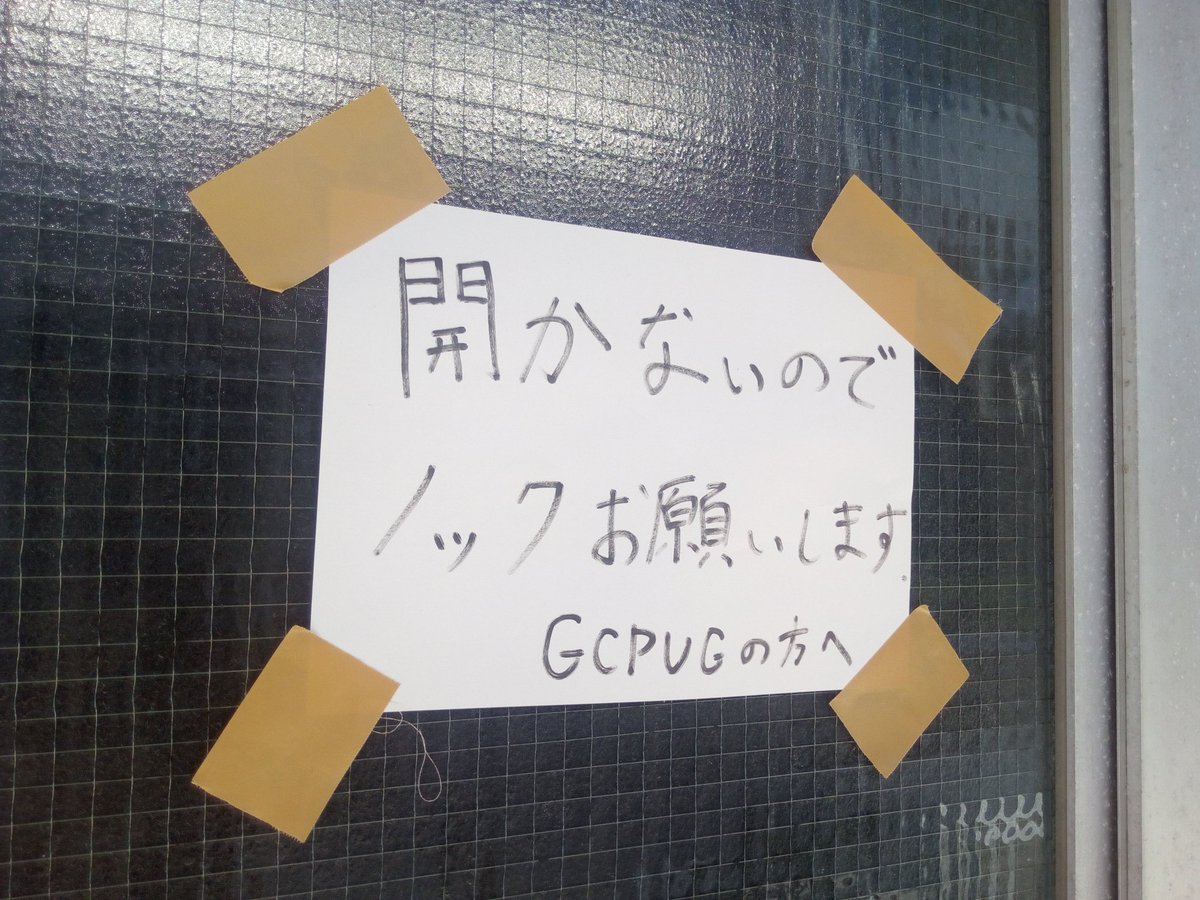 開かないので
ノックお願いします.
GCPUGの方へ